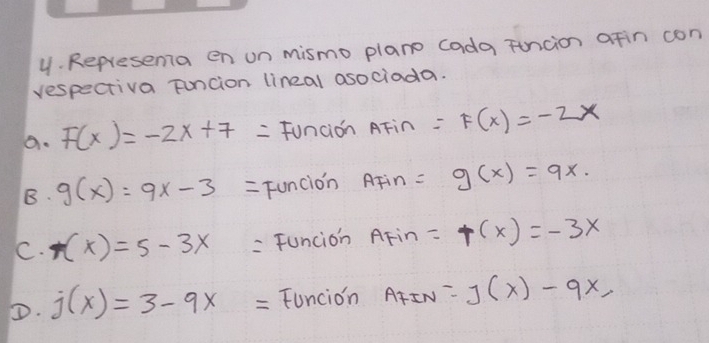 4. Representa en un mismo plano cada Funcion afin con
respectiva Funcion lineal asociada.
a. F(x) = -2x + 7 = Función AFin = F(x) = -2x
B. g(x) = 9x - 3 = Función AFin = g(x) = 9x.
C. t(x) = 5 - 3x = Función AFin = t(x) = -3x
D. j(x) = 3 - 9x = Función AFIN = J(x) - 9x